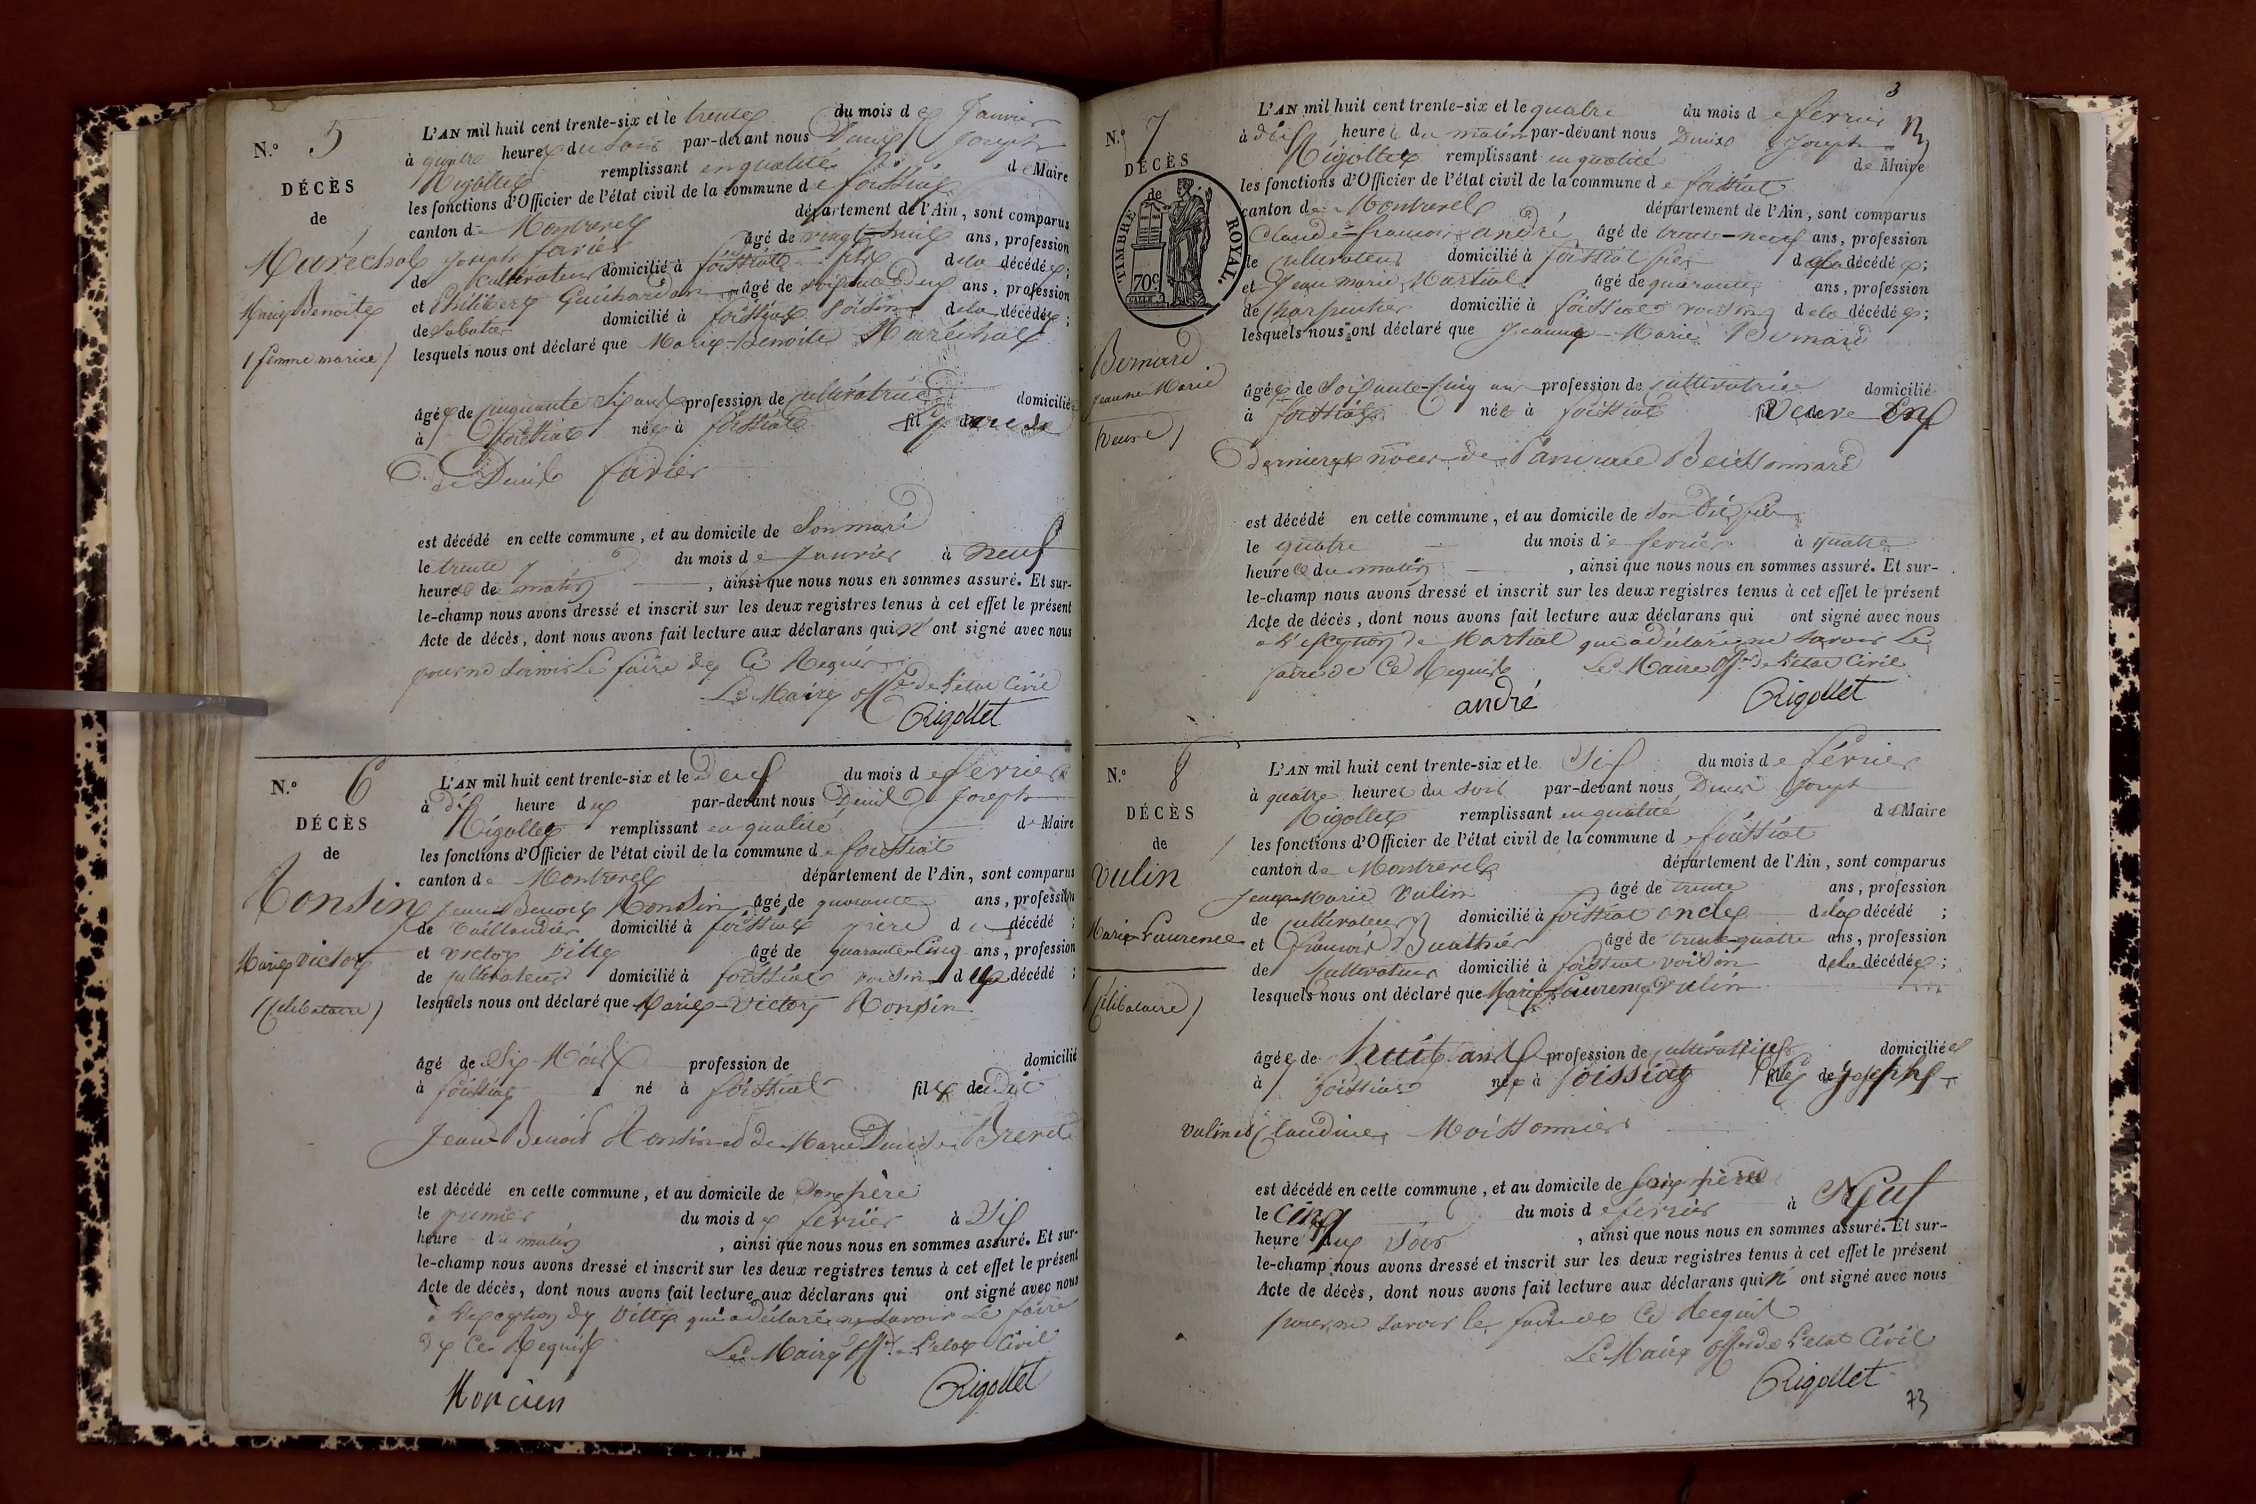 N.° 5
DÉCÈS
de
Maréchal
Marie Benoite
(femme mariée)
L'AN mil huit cent trente-six et le trente du mois de Janvier
à quatre heures du soir par-devant nous Denis Joseph
Rigollet remplissant en qualité de Maire
les fonctions d'Officier de l'état civil de la commune de foissiat
canton de Montrevel département de l'Ain, sont comparus
Joseph favier âgé de vingt-huit ans, profession
de Cultivateur domicilié à foissiat fils de la décédée;
et Philibert Guichardan âgé de soixante Deux ans, profession
de Sabotier domicilié à foissiat voisin de la décédée;
lesquels nous ont déclaré que Marie-Benoite Maréchal
âgée de Cinquante Six ans profession de cultivatrice domiciliée
à foissiat née à foissiat fil
de Denis favier
est décédé en cette commune, et au domicile de Son mari
le trente du mois de Janvier à neuf
heures de matin, ainsi que nous nous en sommes assuré. Et sur-
le-champ nous avons dressé et inscrit sur les deux registres tenus à cet effet le présent
Acte de décès, dont nous avons fait lecture aux déclarans qui n' ont signé avec nous
pour ne savoir Le faire de Ce Requis
Le Maire off. de L'etat Civil
Rigollet
N.° 6
DÉCÈS
de
Monsin
Marie Victoy
(Celibataire)
L'AN mil huit cent trente-six et le Deux du mois de fevrier
à dix heure du par-devant nous Denis Joseph
Rigollet remplissant en qualité de Maire
les fonctions d'Officier de l'état civil de la commune de foissiat
canton de Montrevel département de l'Ain, sont comparus
Jean Benoit Monsin âgé de quarante ans, profession
de Taillandier domicilié à foissiat père du décédé;
et Victor Ville âgé de quarante Cinq ans, profession
de cultivateur domicilié à foissiat voisin de la décédé;
lesquels nous ont déclaré que Marie-Victoy Monsin
âgé de Six Mois profession de domicilié
à foissiat né à foissiat fille de dit
Jean-Benoit Monsin et de Marie Denise Brevet
est décédé en cette commune, et au domicile de Son père
le premier du mois de fevrier à Dix
heure du matin, ainsi que nous nous en sommes assuré. Et sur-
le-champ nous avons dressé et inscrit sur les deux registres tenus à cet effet le présent
Acte de décès, dont nous avons fait lecture aux déclarans qui ont signé avec nous
à L'exception de Ville qui a déclaré ne savoir Le faire
de Ce Requis Le Maire Off. de L'etat Civil
Moncien Rigollet
3
13
N.° 7
DÉCÈS
de
TIMBRE ROYAL
70c
Bernard
Jeanne Marie
(Veuve)
L'AN mil huit cent trente-six et le quatre du mois de février
à dix heures du matin par-devant nous Denis Joseph
Rigollet remplissant en qualité de Maire
les fonctions d'Officier de l'état civil de la commune de foissiat
canton de Montrevel département de l'Ain, sont comparus
Claude-francois andré âgé de trente-neuf ans, profession
de Cultivateur domicilié à foissiat fils de la décédée;
et Jean marie Martial âgé de quarante ans, profession
de Charpentier domicilié à foissiat voisin de la décédée;
lesquels nous ont déclaré que Jeanne-Marie Bernard
âgée de Soixante-Cinq ans profession de cultivatrice domicilié
à foissiat née à foissiat Veuve En
dernieres noces de Beissonnard
est décédé en cette commune, et au domicile de Son Dit fils
le quatre du mois de fevrier à quatre
heures du matin, ainsi que nous nous en sommes assuré. Et sur-
le-champ nous avons dressé et inscrit sur les deux registres tenus à cet effet le présent
Acte de décès, dont nous avons fait lecture aux déclarans qui ont signé avec nous
à L'exception de Martial que a déclaré ne savoir Le
faire de Ce Requis Le Maire Off. de L'etat Civil
andré Rigollet
N.° 8
DÉCÈS
de
Vulin
Marie Laurence
(Célibataire)
L'AN mil huit cent trente-six et le Six du mois de février
à quatre heures du soir par-devant nous Denis Joseph
Rigollet remplissant en qualité de Maire
les fonctions d'Officier de l'état civil de la commune de foissiat
canton de Montrevel département de l'Ain, sont comparus
Jean-Marie Vulin âgé de trente ans, profession
de cultivateur domicilié à foissiat oncle de la décédé;
et francois Buathier âgé de trente-quatre ans, profession
de Cultivateur domicilié à foissiat voisin de la décédée;
lesquels nous ont déclaré que Marie Laurence Vulin
âgée de huit ans profession de cultivatrice domiciliée
à foissiat née à foissiat fille de Joseph
Vulin et Claudine Moissonnier
est décédé en cette commune, et au domicile de Son père
le cinq du mois de février à Neuf
heure du Soir, ainsi que nous nous en sommes assuré. Et sur-
le-champ nous avons dressé et inscrit sur les deux registres tenus à cet effet le présent
Acte de décès, dont nous avons fait lecture aux déclarans qui n' ont signé avec nous
pour ne savoir le faire de Ce Requis
Le Maire off. de L'etat Civil
Rigollet
73